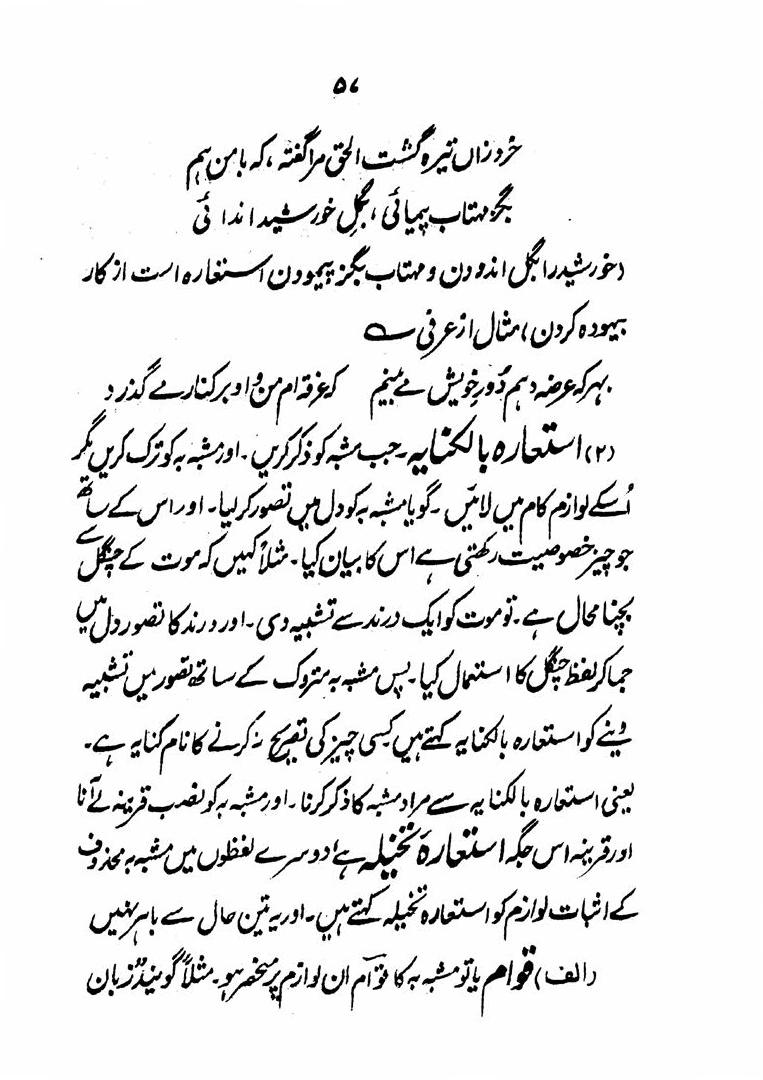 ۵۷
خرد زاں تیرہ گشت الحق مرا گفتہ، کہ با من ہم
بگز مہتاب پیمائی، بگل خورشید اندائی
(خورشید را بگل اندودن و مہتاب بگز پیمودن استعارہ است از کار
بیہودہ کردن) مثال از عرفی ؎
بہر کہ عرضہ دہم دُور خویش مے بینم کہ غرقہ ام من و او بر کنار مے گذرد
(۲) استعارہ بالکنایہ۔ جب مشبہ کو ذکر کریں۔ اور مشبہ بہ کو ترک کریں مگر
اُسکے لوازم کام میں لائیں۔ گویا مشبہ بہ کو دل میں تصور کر لیا۔ اور اس کے ساتھ
جو چیز خصوصیت رکھتی ہے اس کا بیان کیا۔ مثلاً کہیں کہ موت کے چنگل سے
بچنا محال ہے۔ تو موت کو ایک درند سے تشبیہ دی۔ اور درند کا تصور دل میں
جما کر لفظ چنگل کا استعمال کیا۔ پس مشبہ بہ متروک کے ساتھ تصور میں تشبیہ
دینے کو استعارہ بالکنایہ کہتے ہیں کسی چیز کی تصریح نہ کرنے کا نام کنایہ ہے۔
یعنی استعارہ بالکنایہ سے مراد مشبہ کا ذکر کرنا۔ اور مشبہ بہ کو بنصب قرینہ لے آنا
اور قرینہ اس جگہ استعارہَ تخیلہ ہے دوسرے لفظوں میں مشبہ بہ محذوف
کے اثبات لوازم کو استعارہ تخیلہ کہتے ہیں۔ اور یہ تین حال سے باہر نہیں
(الف) قوام یا تو مشبہ بہ کا قوام ان لوازم پر منحصر ہو۔ مثلاً گویند زبان